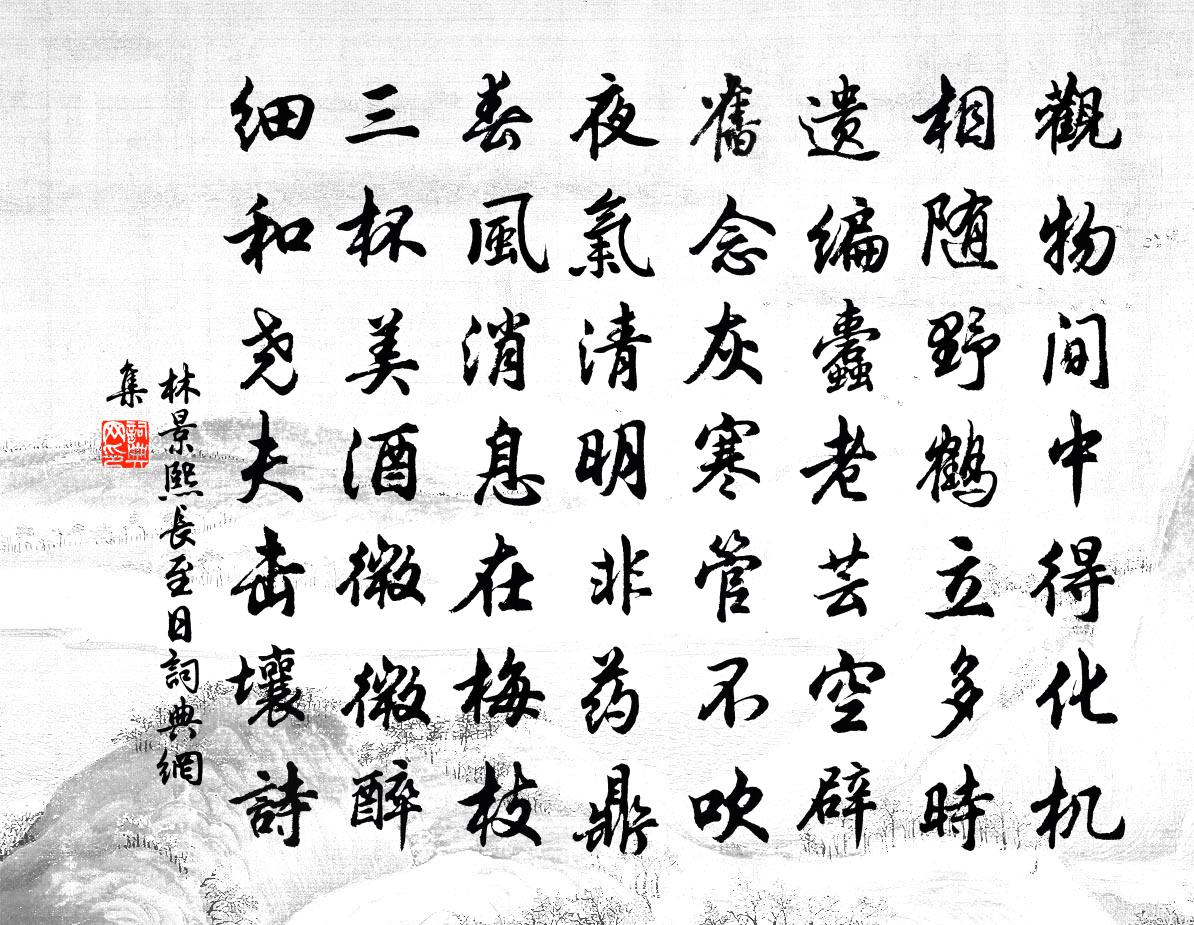 觀物间中得化机
相随野鹤立多時
遗编蠹老芸空辟
舊念灰寒管不吹
夜氣清明非药鼎
春風消息在梅枝
三杯美酒微微醉
细和尧夫击壤詩
林景熙長至日詞典網
集
詞典網印